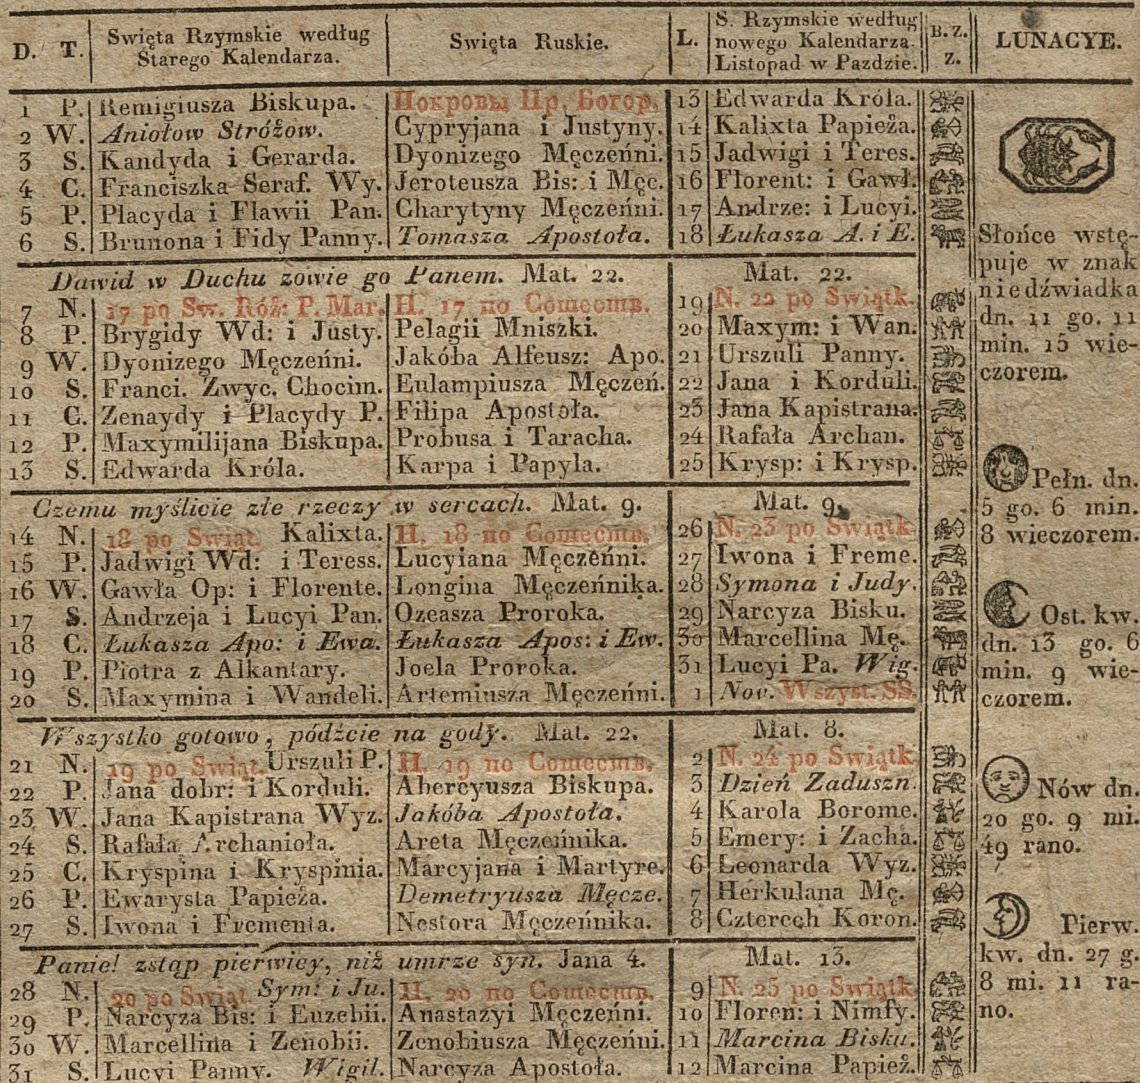 D. T. Swięta Rzymskie według Starego Kalendarza. Swięta Ruskie. L. S. Rzymskie według nowego Kalendarza. Listopad w Pazdzie. B. Z. Z. LUNACYE.
1 P. Remigiusza Biskupa. Покровы Пр. Богор. 13 Edwarda Króla.
2 W. Aniołow Stróżow. Cypryjana i Justyny. 14 Kalixta Papieża.
3 S. Kandyda i Gerarda. Dyonizego Męczeńni. 15 Jadwigi i Teres.
4 C. Franciszka Seraf. Wy. Jeroteusza Bis: i Męc. 16 Florent: i Gawł.
5 P. Placyda i Flawii Pan. Charytyny Męczeńni. 17 Andrze: i Lucyi.
6 S. Brunona i Fidy Panny. Tomasza Apostoła. 18 Łukasza A. i E.
Dawid w Duchu zowie go Panem. Mat. 22. Mat. 22.
7 N. 17 po Sw. Róż: P. Mar. Н. 17 по Сошеств. 19 N. 22 po Swiątk.
8 P. Brygidy Wd: i Justy. Pelagii Mniszki. 20 Maxym: i Wan.
9 W. Dyonizego Męczeńni. Jakóba Alfeusz: Apo. 21 Urszuli Panny.
10 S. Franci. Zwyc. Chocim. Eulampiusza Męczeń. 22 Jana i Korduli.
11 C. Zenaydy i Placydy P. Filipa Apostoła. 23 Jana Kapistrana.
12 P. Maxymilijana Biskupa. Probusa i Taracha. 24 Rafała Archan.
13 S. Edwarda Króla. Karpa i Papyla. 25 Krysp: i Krysp.
Czemu myślicie złe rzeczy w sercach. Mat. 9. Mat. 9.
14 N. 18 po Swiąt. Kalixta. Н. 18 по Сошеств. 26 N. 23 po Swiątk.
15 P. Jadwigi Wd: i Teress. Lucyiana Męczeńni. 27 Iwona i Freme.
16 W. Gawła Op: i Florente. Longina Męczeńnika. 28 Symona i Judy.
17 S. Andrzeja i Lucyi Pan. Ozeasza Proroka. 29 Narcyza Bisku.
18 C. Łukasza Apo: i Ewa. Łukasza Apos: i Ew. 30 Marcellina Mę.
19 P. Piotra z Alkantary. Joela Proroka. 31 Lucyi Pa. Wig.
20 S. Maxymina i Wandeli. Artemiusza Męczeńni. 1 Nov. Wszyst. SS.
Wszystko gotowo, pódźcie na gody. Mat. 22. Mat. 8.
21 N. 19 po Swiąt. Urszuli P. Н. 19 по Сошеств. 2 N. 24 po Swiątk
22 P. Jana dobr: i Korduli. Abercyusza Biskupa. 3 Dzień Zaduszn.
23 W. Jana Kapistrana Wyz. Jakóba Apostoła. 4 Karola Borome.
24 S. Rafała Archanioła. Areta Męczeńnika. 5 Emery: i Zacha.
25 C. Kryspina i Kryspinia. Marcyjana i Martyre. 6 Leonarda Wyz.
26 P. Ewarysta Papieża. Demetryusza Męcze. 7 Herkulana Mę.
27 S. Iwona i Frementa. Nestora Męczeńnika. 8 Czterech Koron.
Panie! zstąp pierwicy, niż umrze syn. Jana 4. Mat. 13.
28 N. 20 po Swiąt. Sym: i Ju. Н. 20 по Сошеств. 9 N. 25 po Swiątk.
29 P. Narcyza Bis: i Euzebii. Anastazyi Męczeńni. 10 Floren: i Nimfy.
30 W. Marcellina i Zenobii. Zenobiusza Męczeńni. 11 Marcina Bisku.
31 S. Lucyi Panny. Wigil. Narcyza Apostoła. 12 Marcina Papież.
Słońce wstę-
puje w znak
niedźwiadka
dn. 11 go. 11
min. 15 wie-
czorem.
Pełn. dn.
5 go. 6 min.
8 wieczorem.
Ost. kw.
dn. 13 go. 6
min. 9 wie-
czorem.
Nów dn.
20 go. 9 mi.
49 rano.
Pierw.
kw. dn. 27 g.
8 mi. 11 ra-
no.